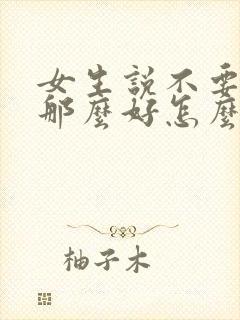 女生説不要
那麼好怎麼
柚子木